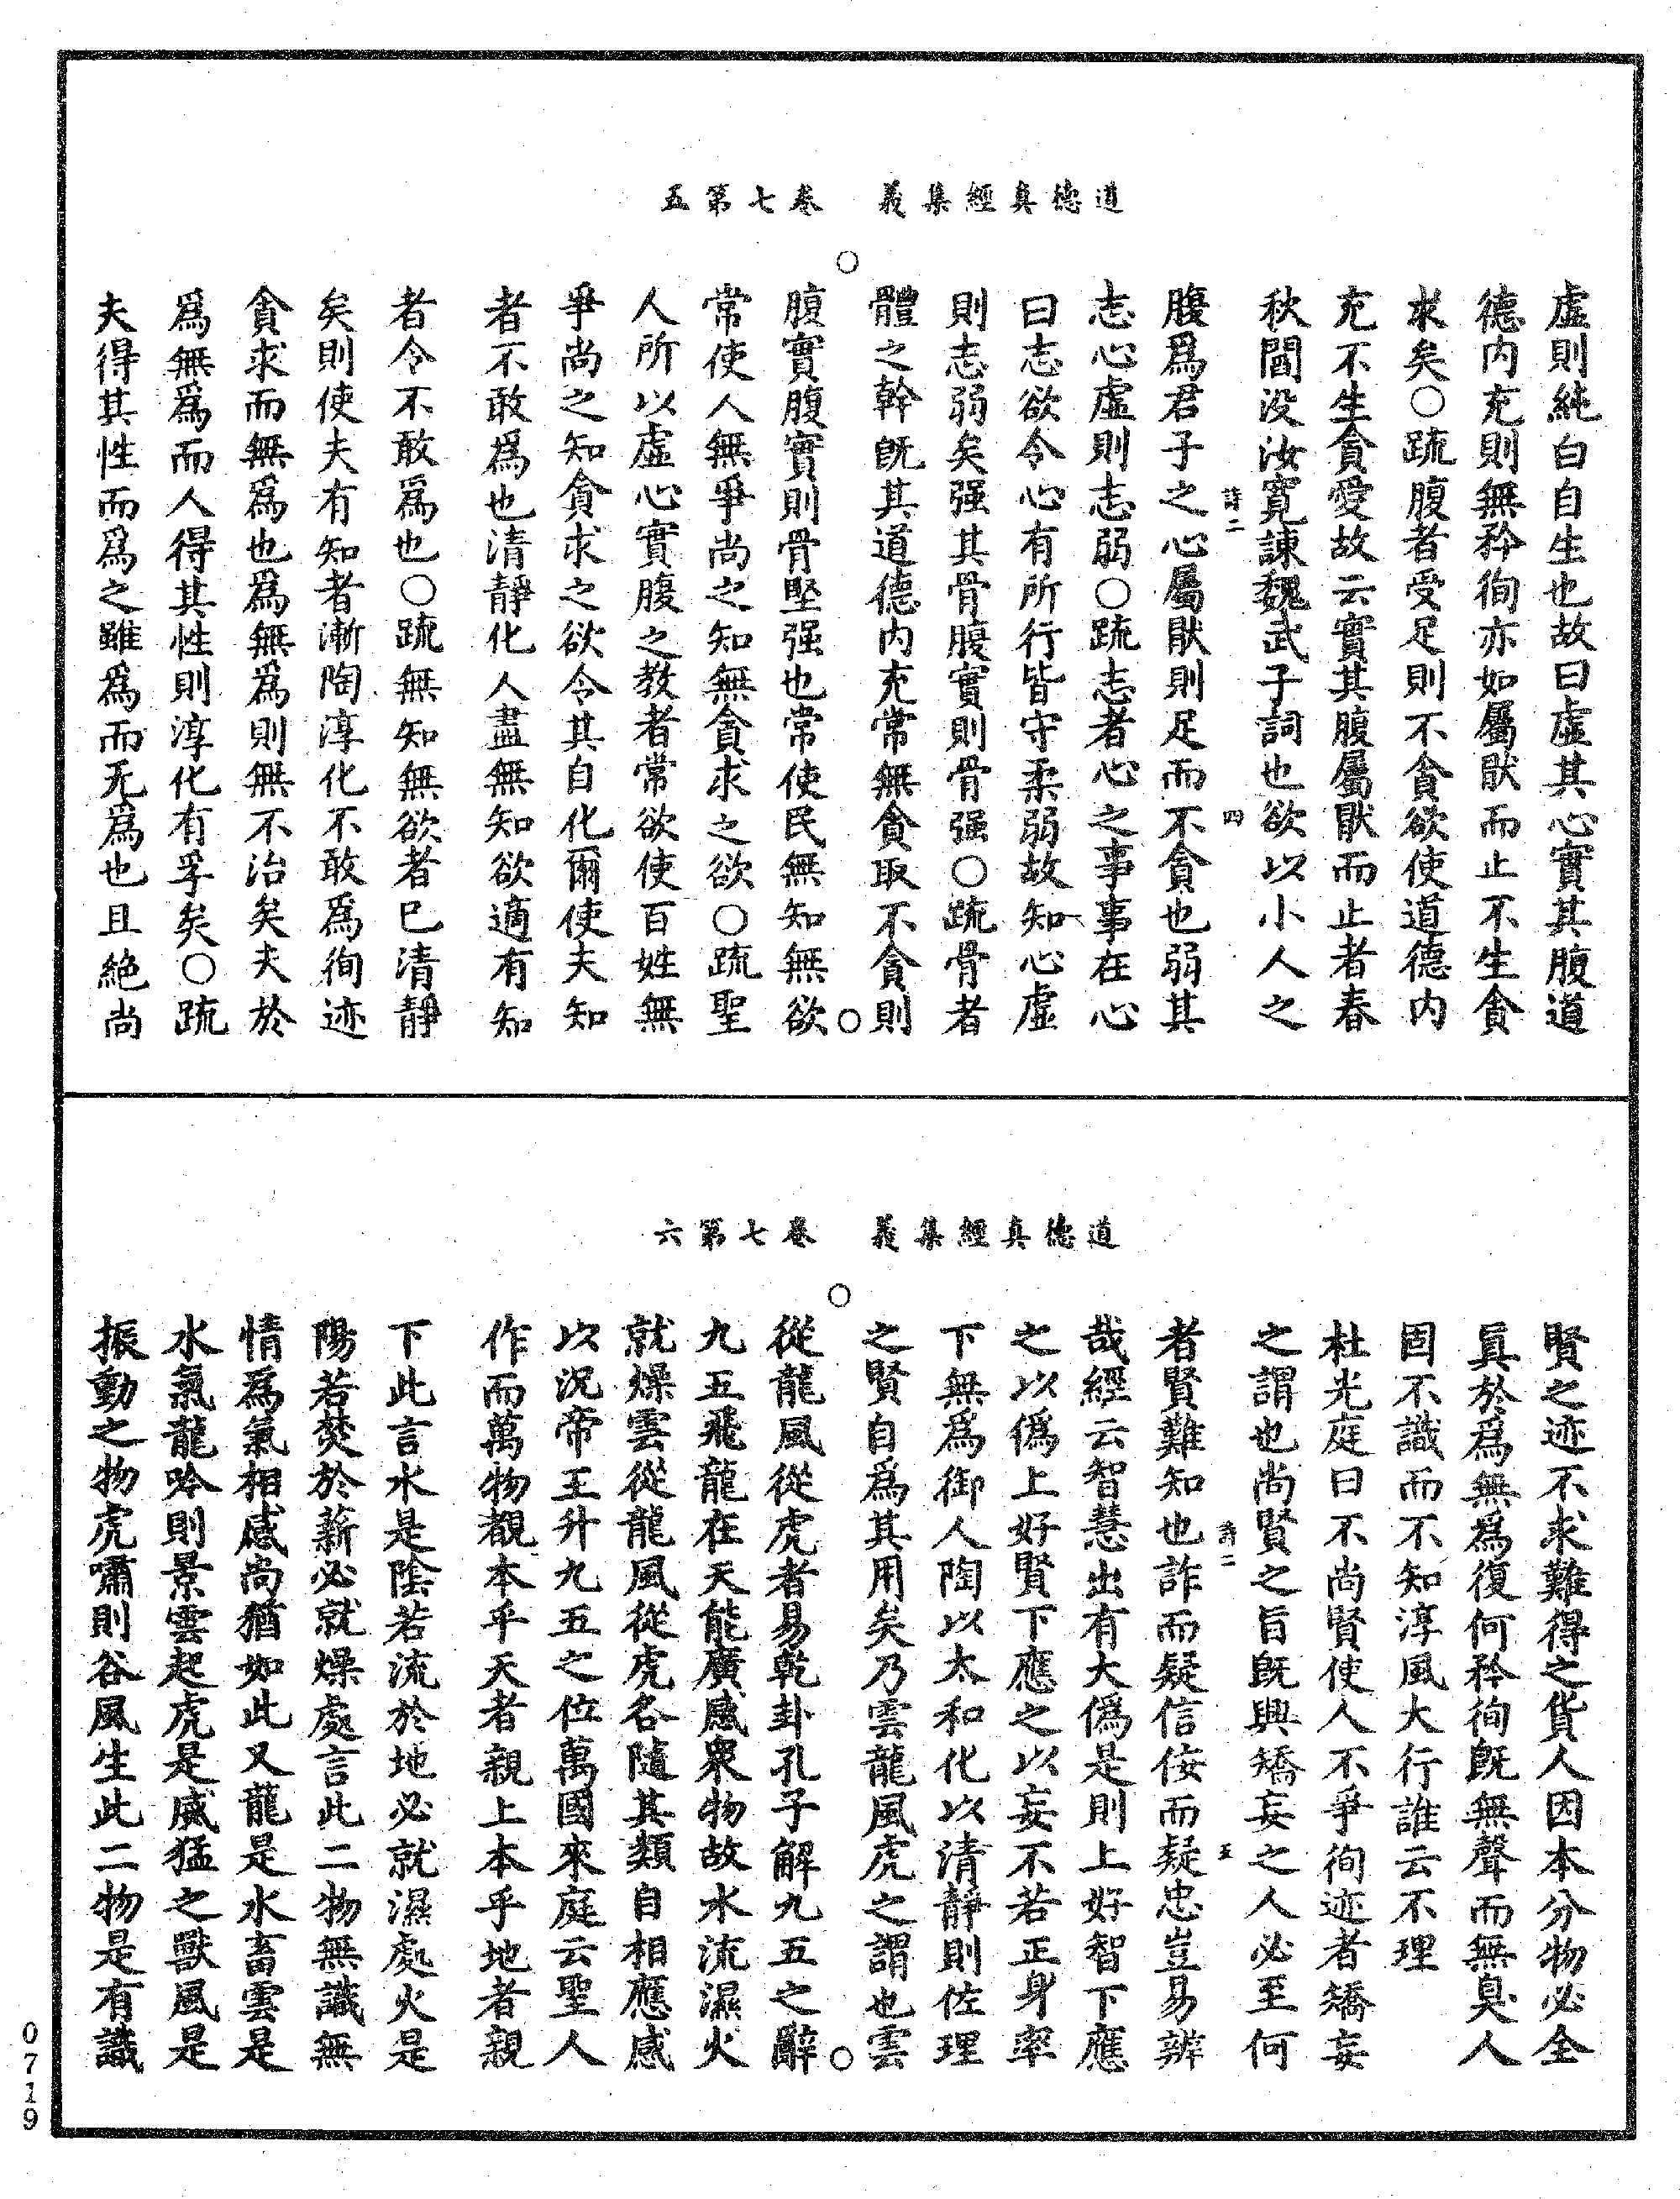 道德真經集義　卷七第五
虛則純白自生也故曰虛其心實其腹道
德内充則無矜徇亦如屬猒而止不生貪
求矣○䟽腹者受足則不貪欲使道德内
充不生貪愛故云實其腹屬猒而止者春
秋閻没汝寛諫魏武子詞也欲以小人之
詩二　四
腹爲君子之心屬猒則足而不貪也弱其
志心虛則志弱○䟽志者心之事事在心
曰志欲令心有所行皆守柔弱故知心虛
則志弱矣强其骨腹實則骨强○䟽骨者
體之幹旣其道德内充常無貪取不貪則
腹實腹實則骨堅强也常使民無知無欲
常使人無爭尚之知無貪求之欲○䟽聖
人所以虛心實腹之教者常欲使百姓無
爭尚之知貪求之欲令其自化爾使夫知
者不敢爲也清靜化人盡無知欲適有知
者令不敢爲也○䟽無知無欲者巳清靜
矣則使夫有知者漸陶淳化不敢爲徇迹
貪求而無爲也爲無爲則無不治矣夫於
爲無爲而人得其性則淳化有孚矣○䟽
夫得其性而爲之雖爲而无爲也且絶尚
道德真經集義　卷七第六
賢之迹不求難得之貨人因本分物必全
眞於爲無爲復何矜徇旣無聲而無臭人
固不識而不知淳風大行誰云不理
杜光庭曰不尚賢使人不爭徇迹者矯妄
之謂也尚賢之旨旣興矯妄之人必至何
詩二　五
者賢難知也詐而疑信侫而疑忠豈易辨
哉經云智慧出有大僞是則上好智下應
之以僞上好賢下應之以妄不若正身率
下無爲御人陶以太和化以清靜則佐理
之賢自爲其用矣乃雲龍風虎之謂也雲
從龍風從虎者易乾卦孔子解九五之辭
九五飛龍在天能廣感衆物故水流濕火
就燥雲從龍風從虎各隨其類自相應感
以況帝王升九五之位萬國來庭云聖人
作而萬物覩本乎天者親上本乎地者親
下此言水是隂若流於地必就濕處火是
陽若焚於薪必就燥處言此二物無識無
情爲氣相感尚猶如此又龍是水畜雲是
水氣龍吟則景雲起虎是威猛之獸風是
振動之物虎嘯則谷風生此二物是有識
0719